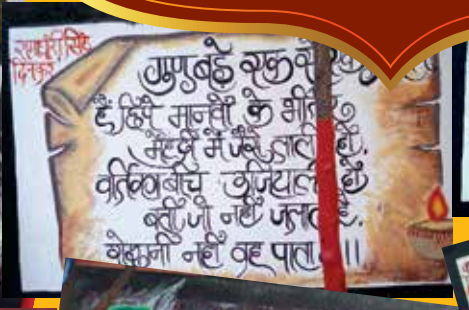 रामधारी सिंह
दिनकर
गुण बड़े एक से एक
हैं छिपे मानवों के भीतर
मेंहदी में जैसे लाली हो,
वर्तिका बीच उजियाली हो
बत्ती जो नहीं जलाता है,
रोशनी नहीं वह पाता ॥